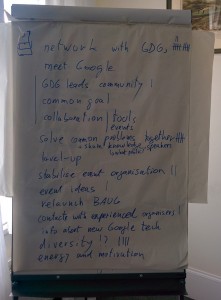 network with GDGs
meet Google
GDG leads community |
common goal
collaboration | tools
events
solve common problems together
share knowledge speakers
level-up
stabilise event organisation ||
event ideas |
relaunch BAUG
contacts with experienced organisers |
info about new Google tech
diversity !? ||||
energy and motivation